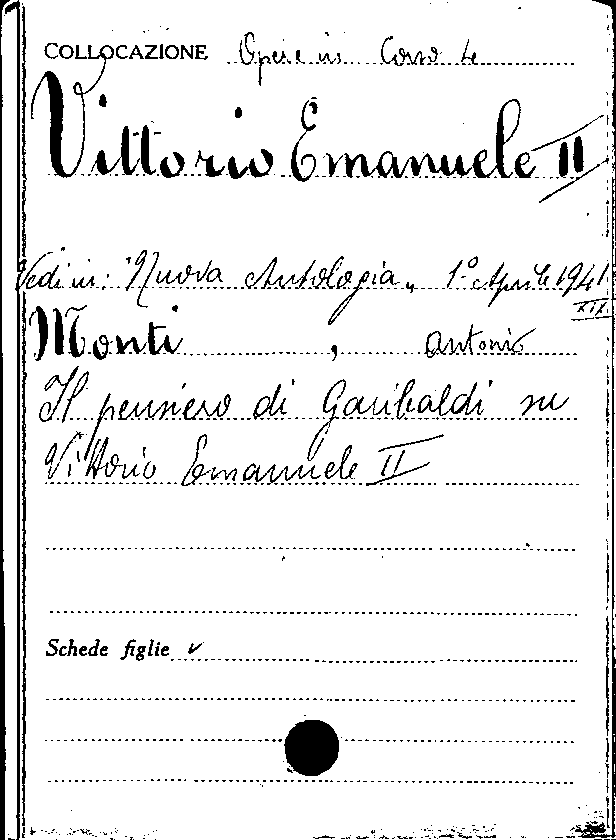 COLLOCAZIONE Opere in Corso te
Vittorio Emanuele II
Vedi in: "Nuova Antologia„ 1º Aprile 1941
XIX
Monti, Antonio
Il pensiero di Garibaldi su
Vittorio Emanuele II
Schede figlie ✓